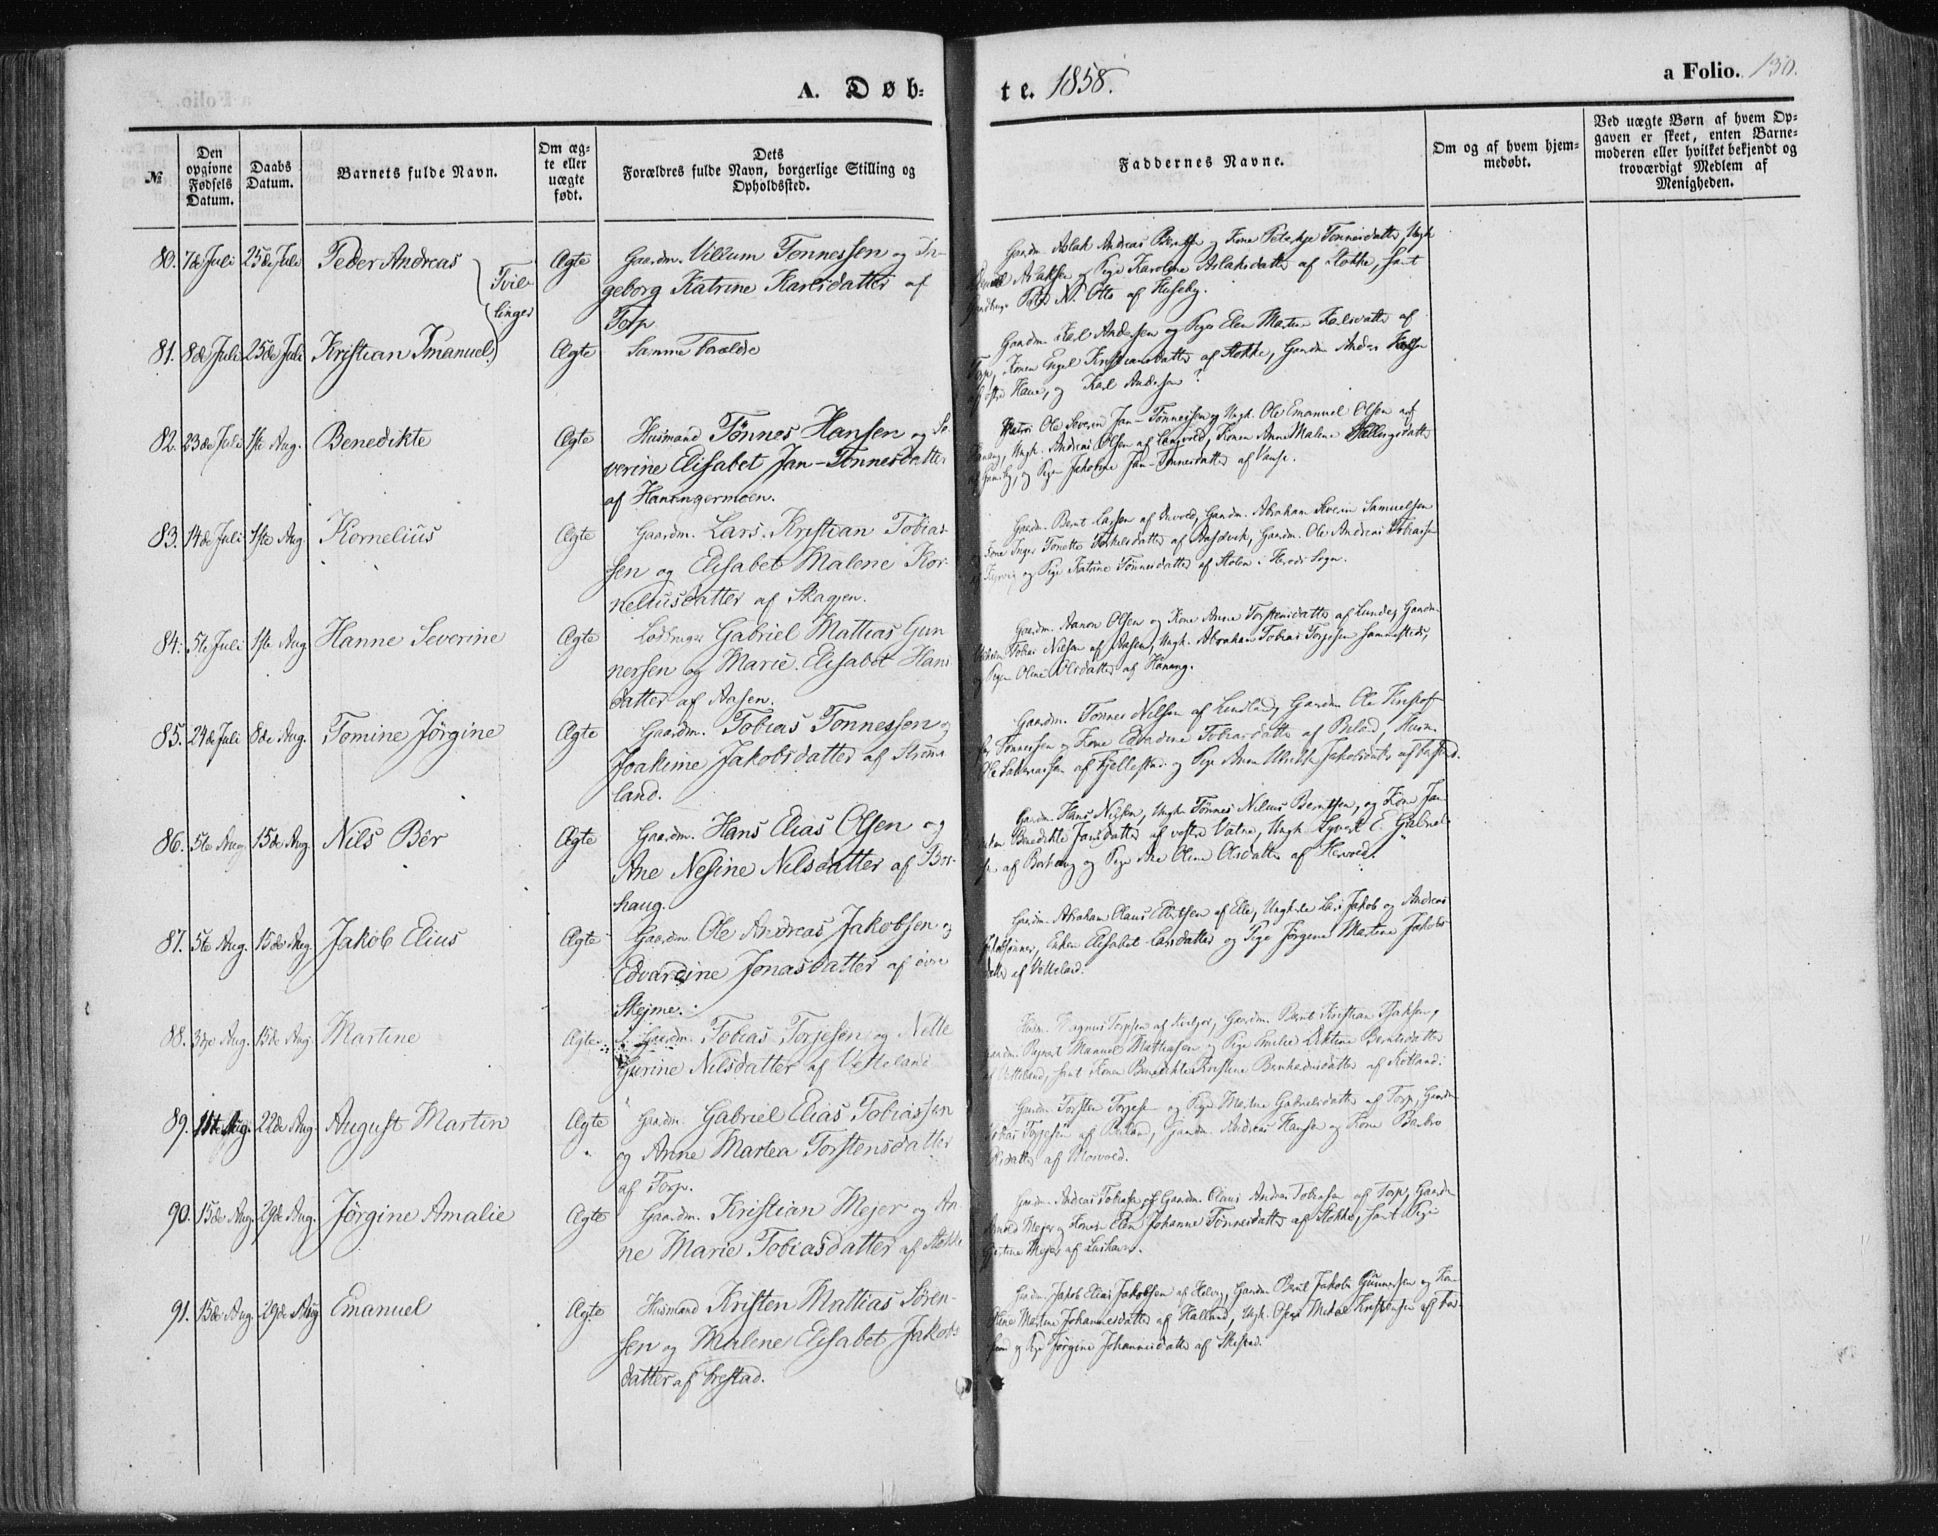 A. Døb-
te. 1858.
a Folio. 130.
№
Den opgivne Fødsels Datum.
Daabs Datum.
Barnets fulde Navn.
Om ægte eller uægte født.
Dets Forældres fulde Navn, borgerlige Stilling og Opholdssted.
Faddernes Navne.
Om og af hvem hjemmedøbt.
Ved uægte Børn af hvem Opgaven er skeet, enten Barnemoderen eller hvilket bekjendt og troværdigt Medlem af Menigheden.
80. 7de Juli 25de Juli Peder Andreas Ægte Gaardm. Villum Tønnessen og In-
geborg Katrine Karlsdatter af
Torp
Tvil-
linger
Gaardm. Aslak Andreas Berntsen og Kone Tønnesdatter, Ungk.
Aslaksen og Pige Karoline Aslaksdatter af Stokke, samt
N. Otto af Huseby.
81. 8de Juli 25de Juli Kristian Imanuel Ægte Samme Forældre
Gaardm. Karl Andersen og Pige Elen Martine Karlsdatter af
Torp, Konen Engel Kristiansdatter af Stokke, Gaardm. Anders
Haue, og Karl Andersen
82. 23de Juli 1ste Aug. Benedikte Ægte Husmand Tønnes Hansen og Se-
verine Elisabet Jan-Tønnesdatter
af Hanangermoen.
Ole Severin Jan-Tønnessen og Ungk. Ole Emanuel Olsen af
Ungk. Andreas Olsen af Langvold, Konen Anne Malene
og Pige Jakobine Jan-Tønnesdatter af Vanse.
83. 14de Juli 1ste Aug. Kornelius Ægte Gaardm. Lars Kristian Tobias-
sen og Elisabet Malene Kor-
neliusdatter af Skagjen.
Gaardm. Bernt Larsen af Gaardm. Abraham Severin Samuelsen
Kone Inger Tonette af Gaardm. Ole Andreas Tobiassen
og Pige Katrine Tønnesdatter af Stolen i Herods Sogn.
84. 5te Juli 1ste Aug Hanne Severine Ægte Lodbruger Gabriel Mattias Gun
nersen og Marie Elisabet Hans
datter af Aasen.
Gaardm. Aanon Olsen og Kone Anne Torstensdatter af Lunde, Gaardm.
Tobias Nilsen af Aasen, Ungk. Abraham Tobias Torjesen sammesteds,
og Pigen Oline Olsdatter af Hanang.
85. 24de Juli 8de Aug. Tomine Jørgine Ægte Gaardm. Tobias Tønnessen og
Joakime Jakobsdatter af Strøms-
land.
Gaardm. Tønnes Nilsen af Lindland, Gaardm. Ole Kristof-
Tønnessen og Kone Edvardine Tobiasdatter af Husm.
Ole af Fjellestad og Pige Anne Jakobsdatter af
86. 5te Aug. 15de Aug Nils Bêr Ægte Gaardm. Hans Elias Olsen og
Ane Nesine Nilsdatter af Bor-
haug.
Gaardm. Hans Nilsen, Ungk. Tønnes Nilius Berntsen, og Kone Jan-
Benedikte Jansdatter af vestre Vatne, Ungk. Syvert E. Gabriel-
sen af Borhaug og Pige Ane Oline Olsdatter af Hervold.
87. 5te Aug. 15de Aug Jakob Elius Ægte Gaardm. Ole Andreas Jakobsen og
Edvardine Jonasdatter af øvre
Skejme.
Gaardm. Abraham Olaus Ellertsen af Elle, Ungkarle Lars Jakob og Andreas
Enken Elisabet Larsdatter og Pige Jørgine Martine Jakobs-
datter af Vetteland.
88. 3die Aug. 15de Aug Martine Ægte Gaardm. Tobias Torjesen og Nelle
Gurine Nilsdatter af Vetteland
Husm. Magnus Torjesen af Gaardm. Bernt Kristian Isaksen,
Manuel Mathiassen og Pige Emilie Berntsdatter
af Vetteland, samt Konen Benedikte Kirstine Bernhardusdatter af Kotland.
89. 11te Aug. 22de Aug August Martin Ægte Gaardm. Gabriel Elias Tobiassen
og Anne Martea Torstensdatter
af Torp.
Gaardm. Torsten Torjesen og Pige Martine Gabrielsdatter af Torp, Gaardm.
Tobias Torjesen af Gaardm. Andreas Hansen og Kone Barbro
af
90. 15de Aug. 29de Aug. Jørgine Amalie Ægte Gaardm. Kristian Mejer og An
ne Marie Tobiasdatter af Stokke
Gaardm. Andreas Tobiassen og Gaardm. Olaus Andreas Tobiassen af Torp, Gaardm.
Mejer og Konen Elen Johanne Tønnesdatter af Stokke, samt Pige
Mejer af
91. 15de Aug. 29de Aug Emanuel Ægte Husmand Kristen Mattias Søren-
sen og Malene Elisabet Jakobs
datter af Frestad.
Gaardm. Jakob Elias Jakobsen af Gaardm. Beril Jakob Gunnersen og Kone
Martine Johannesdatter af Halland, Ungk. Kristensen af
og Pige Jørgine Johannesdatter af